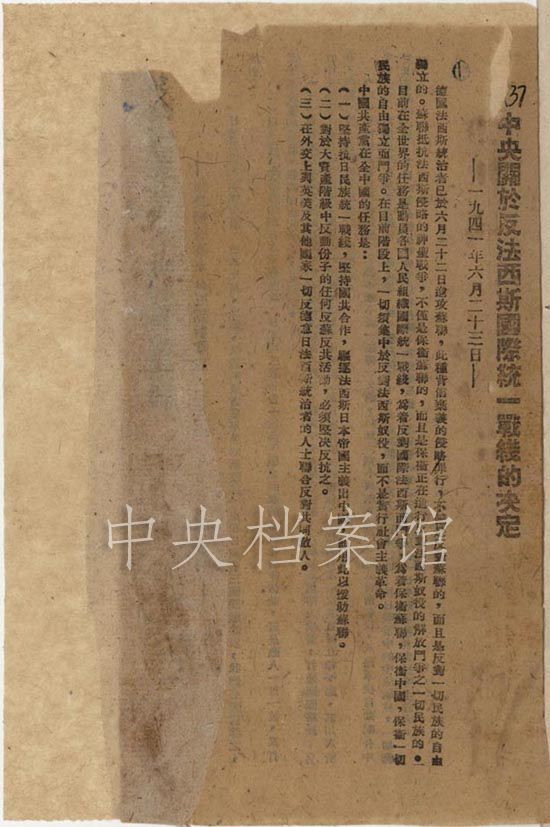 37
中央關於反法西斯國際統一戰綫的決定
——一九四一年六月二十三日——
德國法西斯統治者已於六月二十二日進攻蘇聯，此種背信棄義的侵略罪行，不反對蘇聯的，而且是反對一切民族的自由
獨立的。蘇聯抵抗法西斯侵略的神聖戰爭，不僅是保衛蘇聯的，而且是保衛正在進法西斯奴役的解放鬥爭之一切民族的。
目前在全世界的任務是動員各國人民組織國際統一戰綫，為着反對國際法西斯爭，為着保衛蘇聯，保衛中國，保衛一切
民族的自由獨立而鬥爭。在目前階段上，一切須集中於反對法西斯奴役，而不是實行社會主義革命。
中國共產黨在全中國的任務是：
（一）堅持抗日民族統一戰綫，堅持國共合作，驅逐法西斯日本帝國主義出中用此以援助蘇聯。
（二）對於大資產階級中反動份子的任何反蘇反共活動，必須堅決反抗之。
（三）在外交上與英美及其他國家一切反德意日法西斯統治者的人士聯合反對共同敵人。
中央档案馆